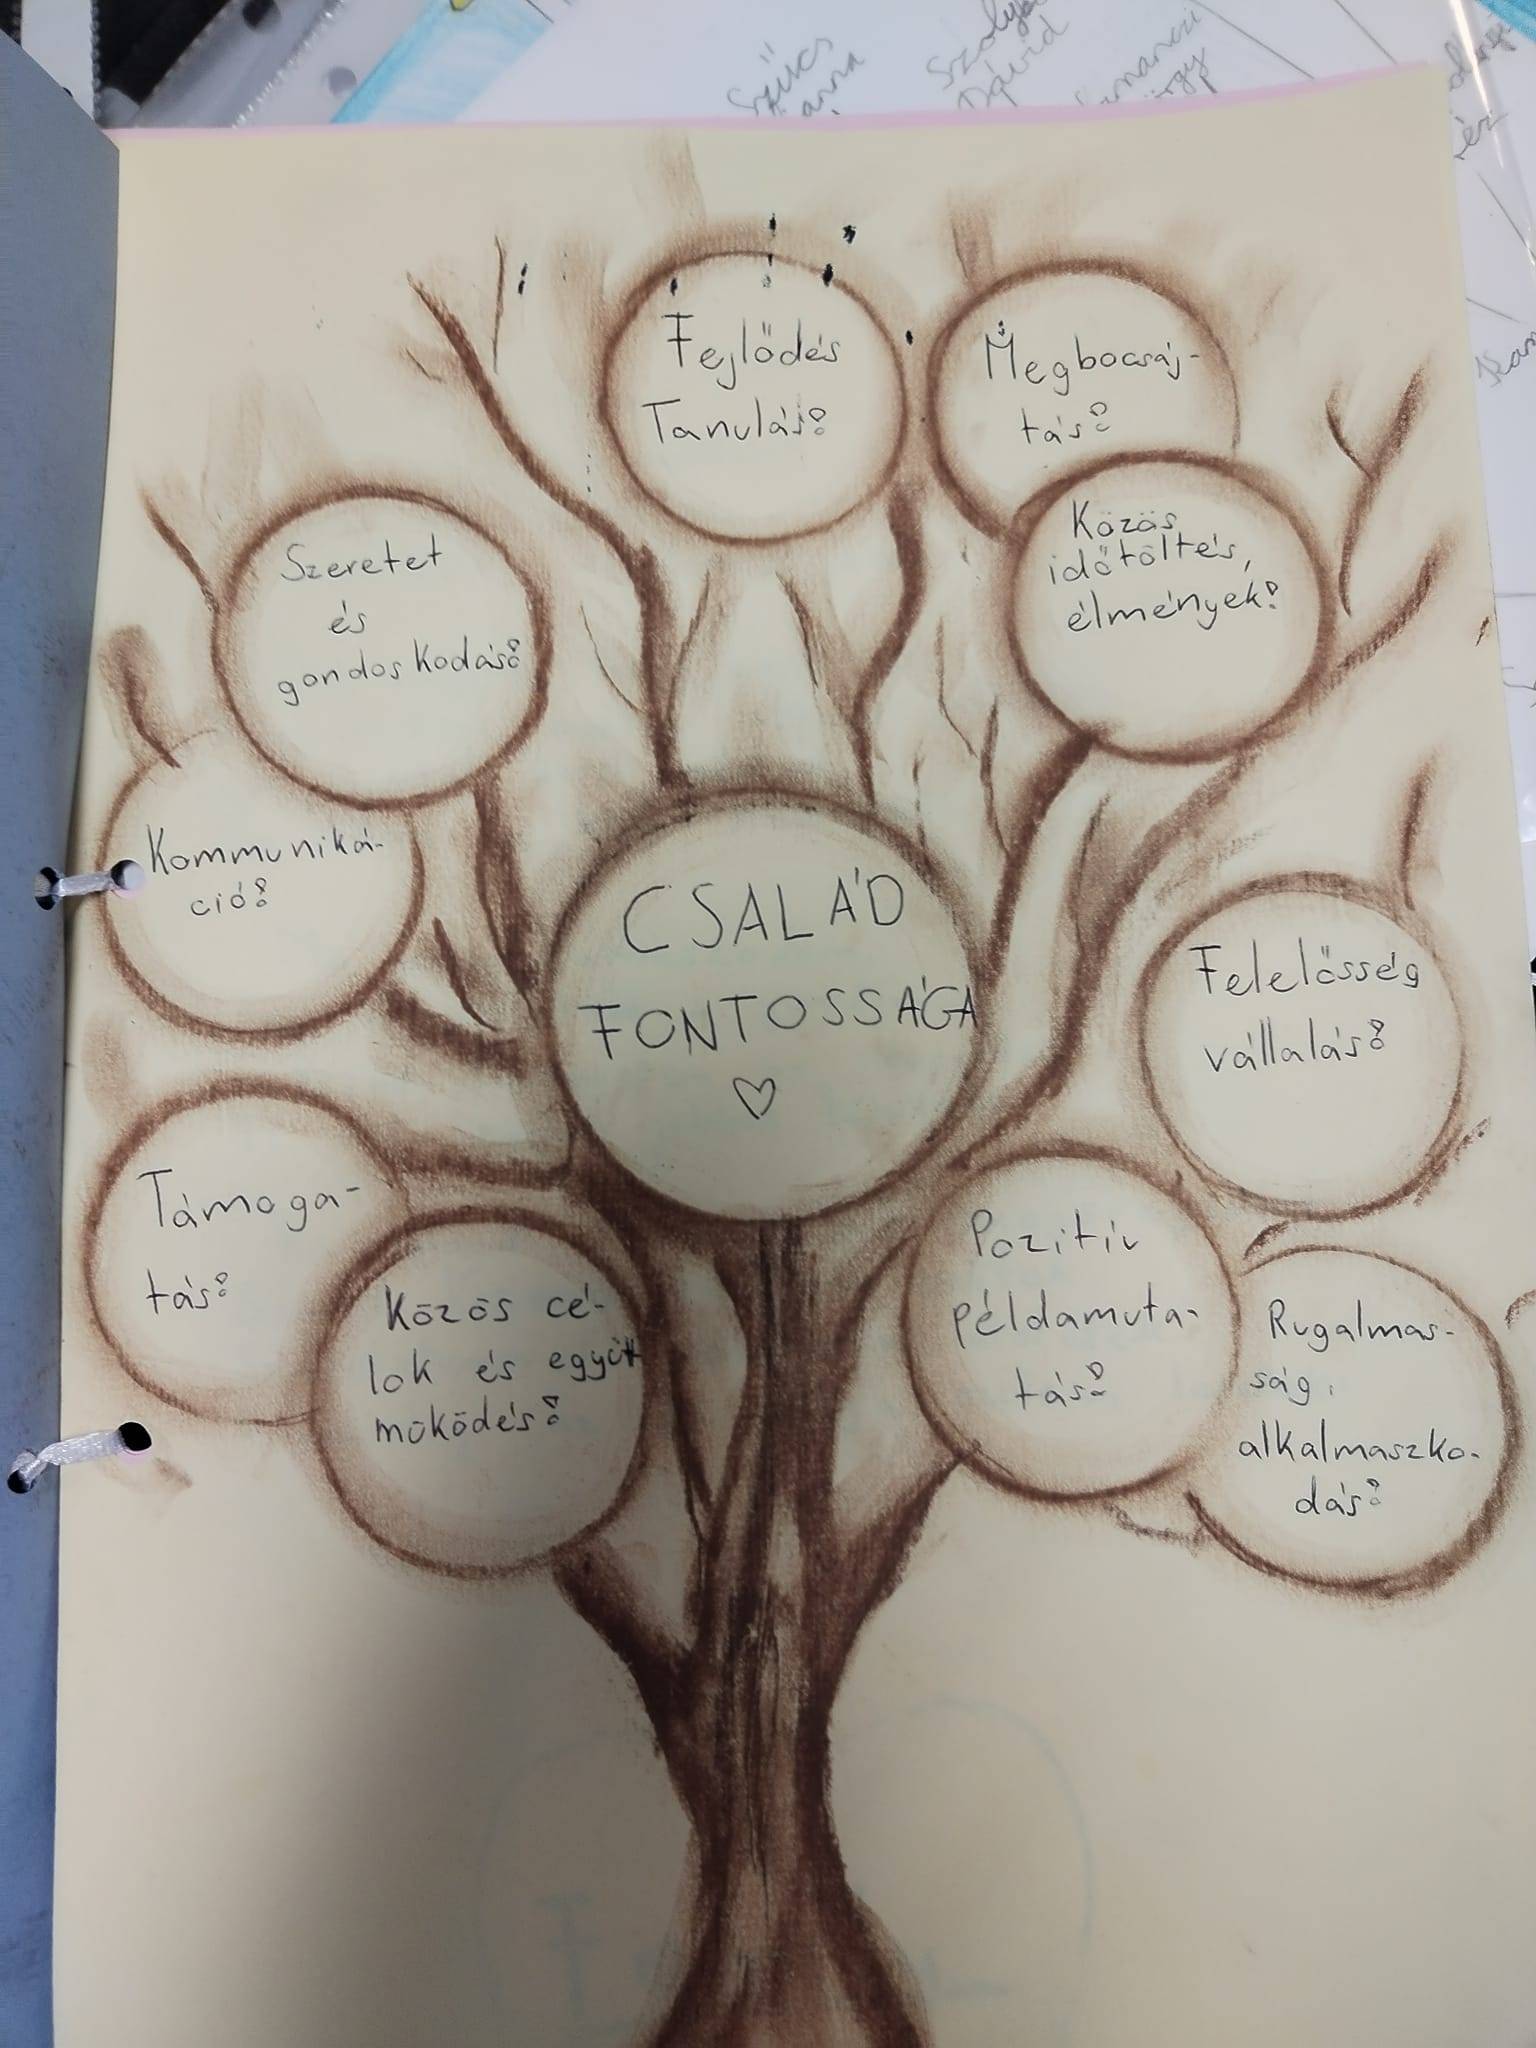 Szűcs
Dávid
Fejlődés
Tanulás!
Megbocsáj-
tás!
Közös
időtöltés,
élmények!
Szeretet
és
gondoskodás!
Kommuniká-
ció!
CSALÁD
FONTOSSÁGA
♡
Felelősség
vállalás!
Támoga-
tás!
Közös cé-
lok és együtt
működés!
Pozitív
példamuta-
tás!
Rugalmas-
ság,
alkalmaszko-
dás!